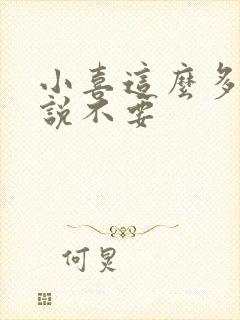 小喜這麼多
說不要
何炅